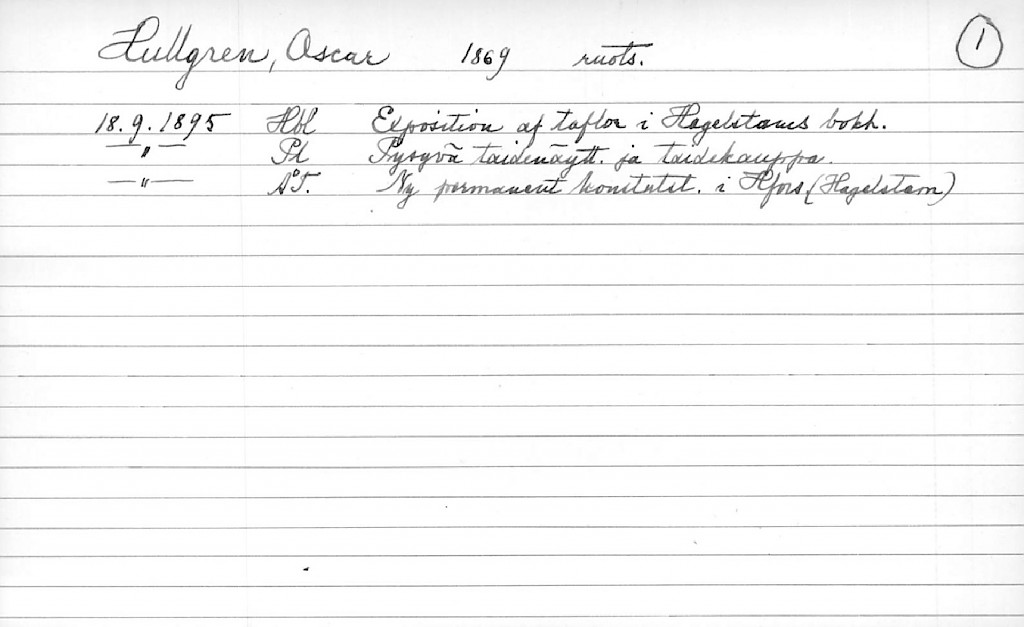 Hullgren, Oscar 1869 ruots. 1
18.9.1895 Hbl Exposition af taflor i Hagelstams bokh.
—"— Pl Pysyvä taidenäytt. ja taidekauppa.
—"— ÅT. Ny permanent konstutst. i Hfors (Hagelstam)